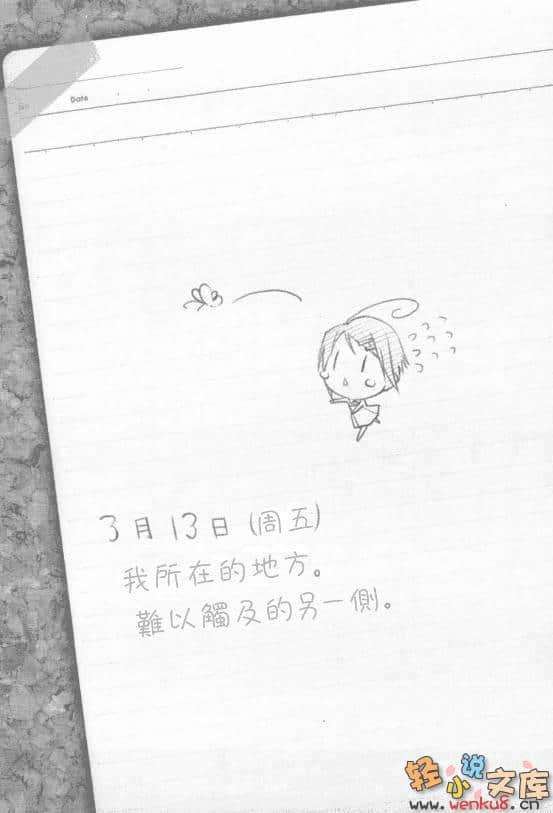 Date
3月13日(周五)
我所在的地方。
難以觸及的另一側。
轻小说文库
www.wenku8.cn